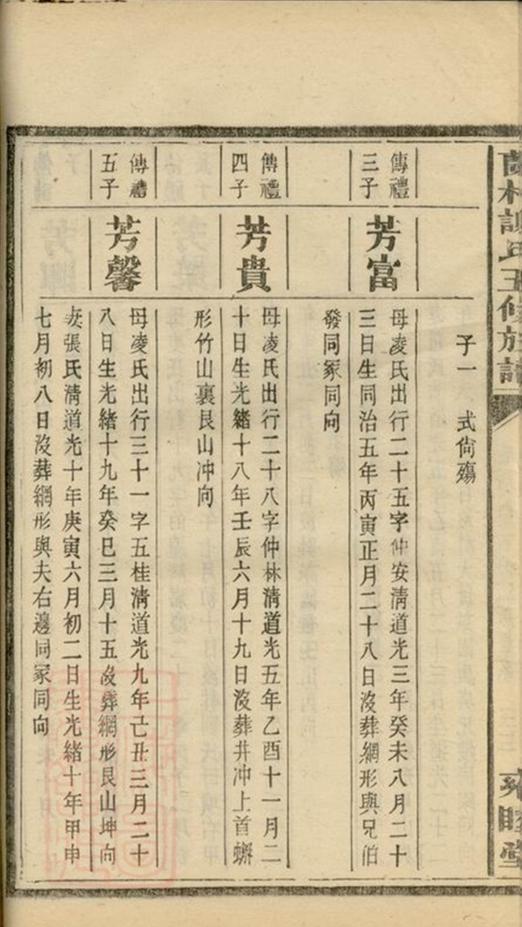 村謝氏五修族譜
雍睦堂
子一 式尙殤
傳禮三子
芳富
母凌氏出行二十五字仲安淸道光三年癸未八月二十
三日生同治五年丙寅正月二十八日沒葬網形與兄伯
發同冢同向
傳禮四子
芳貴
母凌氏出行二十八字仲林淸道光五年乙酉十一月二
十日生光緖十八年壬辰六月十九日沒葬井冲上首螄
形竹山裏艮山冲向
傳禮五子
芳馨
母凌氏出行三十一字五桂淸道光九年己丑三月二十
八日生光緖十九年癸巳三月十五沒葬網形艮山坤向
妻張氏淸道光十年庚寅六月初二日生光緖十年甲申
七月初八日沒葬網形與夫右邊同冢同向